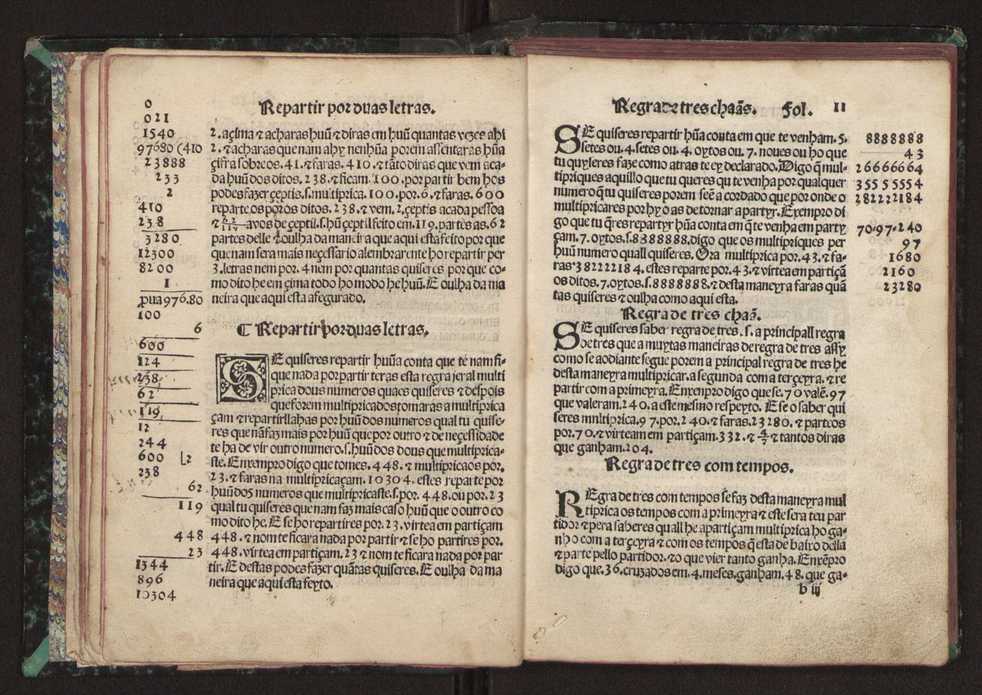 Repartir por duas letras.
0
021
1540
97680 (410
23888
233
2
410
238
3280
12300
8200
1
pua976.80
100
6
600
124
238
62
119
12
244
600 2
238
62
119
448
23
1344
896
10304
2. açima ⁊ acharas huũ ⁊ diras em huũ quantas vezes ahi
2. ⁊ acharas que nam ahy nenhũa porem assentaras hũa
çifra sobre os. 41. ⁊ faras. 410. ⁊ tãto diras que vem a ca-
da huũ dos ditos. 238. ⁊ ficam. 100. por partir bem hos
podes fazer çeptis. s. multiprica. 100. por. 6. ⁊ faras. 600
reparte os poros ditos. 238. ⁊ vem. 2. çeptis a cada pessoa
⁊ avos de çeptil. s. hũ çeptil feito em. 119. partes as. 62
partes delle ⁊ oulha da maneira que aqui esta feito por que
que nam sera mais necessario alembrarente ho repartir per
3. letras nem por. 4 nem por quantas quiseres por que co-
mo dito he em çima todo ho modo he huũ. E oulha da ma
neira que aqui esta afegurado.
¶ Repartir por duas letras.
SE quiseres repartir huũa conta que te nam fi-
que nada por partir teras esta regra jeral multi
prica dous numeros quaes quiseres ⁊ despois
que forem multipricados tomaras a multiprica
çam ⁊ repartillahas por huũ dos numeros qual tu quise-
res que nã faz mais por huũ que por outro ⁊ de neçessidade
te ha de vir outro numero. s. huũ dos dous que multiprica-
ste. Enxenpro digo que tomes. 448. ⁊ multipricaos por.
23. ⁊ faras na multipricaçam. 10304. estes reparte por
huũ dos numeros que multipricaste. s. por. 448. ou por. 23
qual tu quiseres que nam faz mais caso huũ que o outro co
mo dito he. E se ho repartires por. 23. virtea em partiçam
448. ⁊ nom te ficara nada por partir ⁊ se ho partires por.
448. virtea em partiçam. 23 ⁊ nom te ficara nada por par
tir. E destas podes fazer quãtas quiseres. E oulha da ma
neira que aqui esta feyto.
Regra de tres chaãs. Fol. 11
SE quiseres repartir hũa conta em que te venham. 5.
setes ou. 4. setes ou. 4. oytos ou. 7. noues ou ho que
tu quyseres faze como atras te ey declarado. Digo q̃ mul-
tipriques aquillo que tu queres qu te venha por qualquer
numero q̃ tu quiseres porem seẽ a cordado que por onde o
multipricares por hy o as de tornar a partyr. Exempro di
go que tu q̃res repartyr hũa conta em q̃ te venha em party
çam. 7. oytos. s. 8388888. digo que os multipriques per
huũ numero quall quiseres. Ora multiprica por. 43. ⁊ fa-
ras. 382222184. estes reparte por. 43. ⁊ virtea em partiçã
os ditos. 7. oytos. s. 8888888. ⁊ desta maneyra faras quã
tas quiseres ⁊ oulha como aqui esta.
Regra de tres chaã.
SE quiseres saber regra de tres. s. a principall regra
de tres que a muytas maneiras de regra de tres assy
como se ao diante segue porem a principal regra de tres he
desta maneyra multipricar. a segunda com a terçeyra. ⁊ re
partir com a primeyra. Enxenpro digo que se. 70 valẽ. 97
que valeram. 240. a este mesmo respeyto. E se o saber qui
seres multiprica. 97. por. 240. ⁊ faras. 23280. ⁊ parteos
por. 70. ⁊ virteam em partiçam. 332. ⁊ ⁊ tantos diras
que ganham. 204.
Regra de tres com tempos.
REgra de tres com tempos se faz desta maneyra mul
tiprica os tempos com a primeyra ⁊ este sera teu par
tidor ⁊ pera saberes quall he a partiçam multiprica ho ga-
nho com a terçeyra ⁊ com os tempos q̃ esta de baixo della
⁊ parte pello partidor. ⁊ o que vier tanto ganha. Enxẽpro
digo que. 36. cruzados em. 4. meses. ganham. 48. que ga-
b iij
8888888
43
26666664
35555554
282222184
70/97-240
97
1680
2160
23280